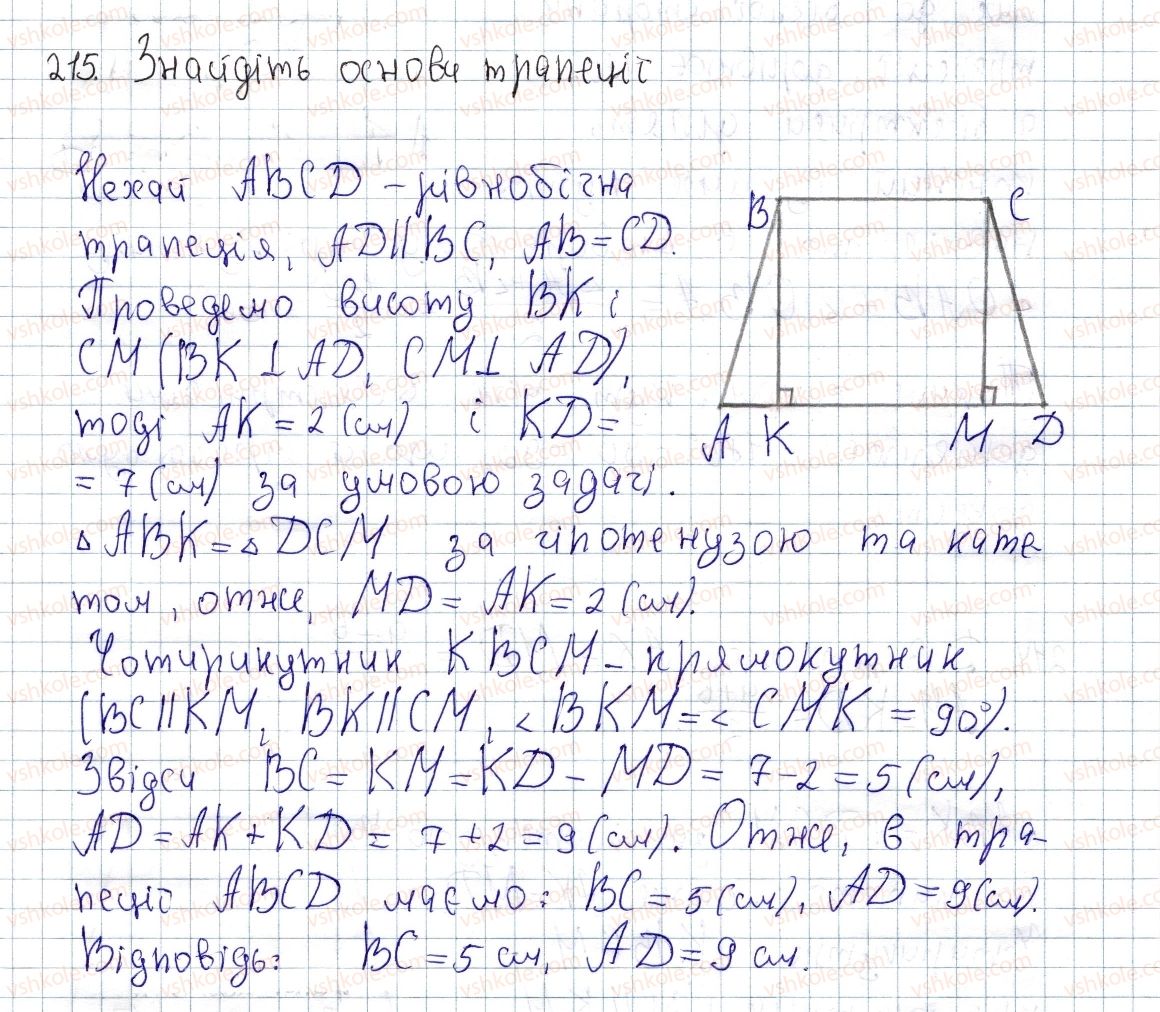 215. Знайдіть основи трапеції
Нехай ABCD – рівнобічна
трапеція, AD||BC, AB=CD.
Проведемо висоту BK і
CM (BK ⊥ AD, CM ⊥ AD),
тоді AK = 2 (см) і KD=
= 7 (см) за умовою задачі.
▵ ABK = ▵ DCM за гіпотенузою та кате
том, отже, MD = AK = 2 (см).
Чотирикутник KBCM – прямокутник
(BC||KM, BK||CM, < BKM = < CMK = 90°).
Звідси BC = KM = KD – MD = 7 – 2 = 5 (см),
AD = AK + KD = 7 + 2 = 9 (см). Отже, в тра-
пеції ABCD маємо: BC = 5 (см), AD = 9 (см).
Відповідь: BC = 5 см, AD = 9 см.
B C
A K M D
vshkole.com